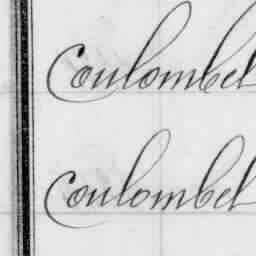 Coulombel
Coulombel